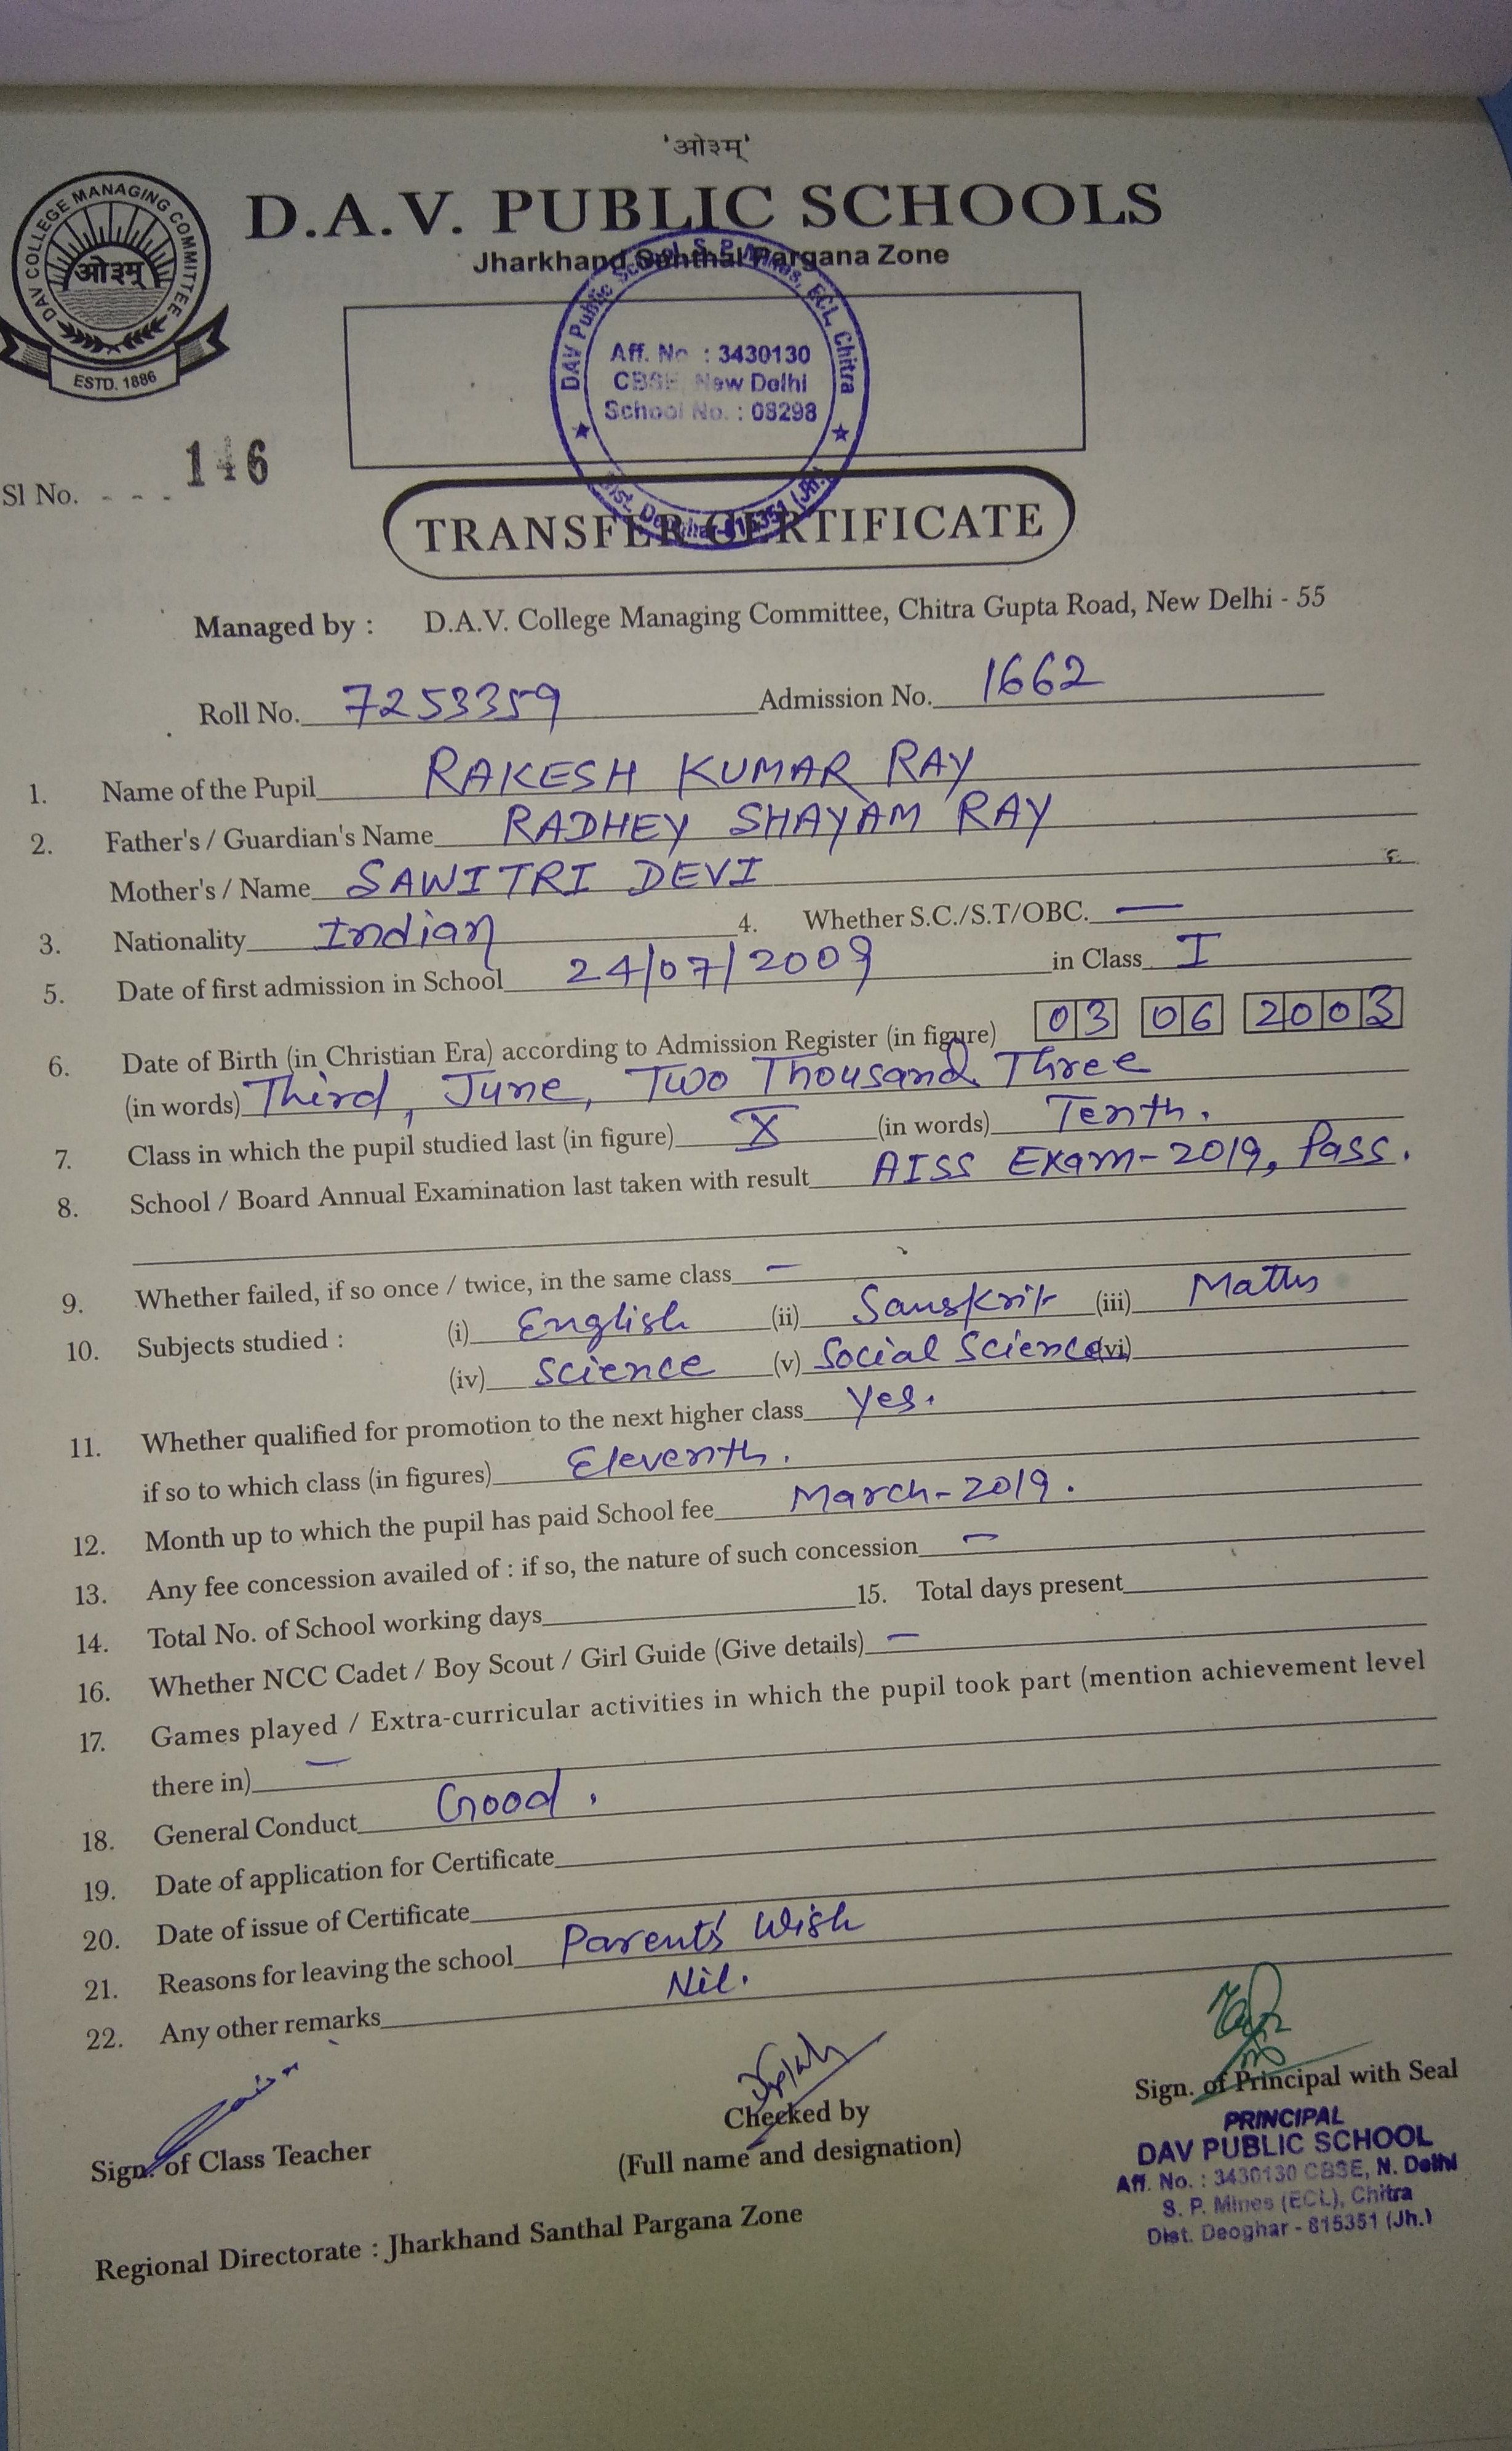 'ओ३म्'
DAV COLLEGE MANAGING COMMITTEE
ओ३म्
ESTD. 1886
D.A.V. PUBLIC SCHOOLS
Jharkhand Santhal Pargana Zone
DAV Public School, S. P. Mines, ECL, Chitra
Aff. No : 3430130
CBSE, New Delhi
School No. : 08298
Dist. Deoghar-815351 (Jh.)
Sl No. - - - 146
TRANSFER CERTIFICATE
Managed by : D.A.V. College Managing Committee, Chitra Gupta Road, New Delhi - 55
Roll No. 7253359 Admission No. 1662
1. Name of the Pupil RAKESH KUMAR RAY
2. Father's / Guardian's Name RADHEY SHAYAM RAY
Mother's / Name SAWITRI DEVI
3. Nationality Indian 4. Whether S.C./S.T/OBC. —
5. Date of first admission in School 24/07/2009 in Class I
6. Date of Birth (in Christian Era) according to Admission Register (in figure) 03 06 2003
(in words) Third, June, Two Thousand Three
7. Class in which the pupil studied last (in figure) X (in words) Tenth.
8. School / Board Annual Examination last taken with result AISS Exam-2019, Pass.
9. Whether failed, if so once / twice, in the same class —
10. Subjects studied : (i) English (ii) Sanskrit (iii) Maths
(iv) Science (v) Social Science (vi)
11. Whether qualified for promotion to the next higher class Yes.
if so to which class (in figures) Eleventh.
12. Month up to which the pupil has paid School fee March-2019.
13. Any fee concession availed of : if so, the nature of such concession —
14. Total No. of School working days 15. Total days present
16. Whether NCC Cadet / Boy Scout / Girl Guide (Give details) —
17. Games played / Extra-curricular activities in which the pupil took part (mention achievement level
there in) —
18. General Conduct Good.
19. Date of application for Certificate
20. Date of issue of Certificate
21. Reasons for leaving the school Parent's Wish
22. Any other remarks Nil.
Sign. of Class Teacher
Checked by
(Full name and designation)
Sign. of Principal with Seal
PRINCIPAL
DAV PUBLIC SCHOOL
Aff. No. : 3430130 CBSE, N. Delhi
S. P. Mines (ECL), Chitra
Dist. Deoghar - 815351 (Jh.)
Regional Directorate : Jharkhand Santhal Pargana Zone